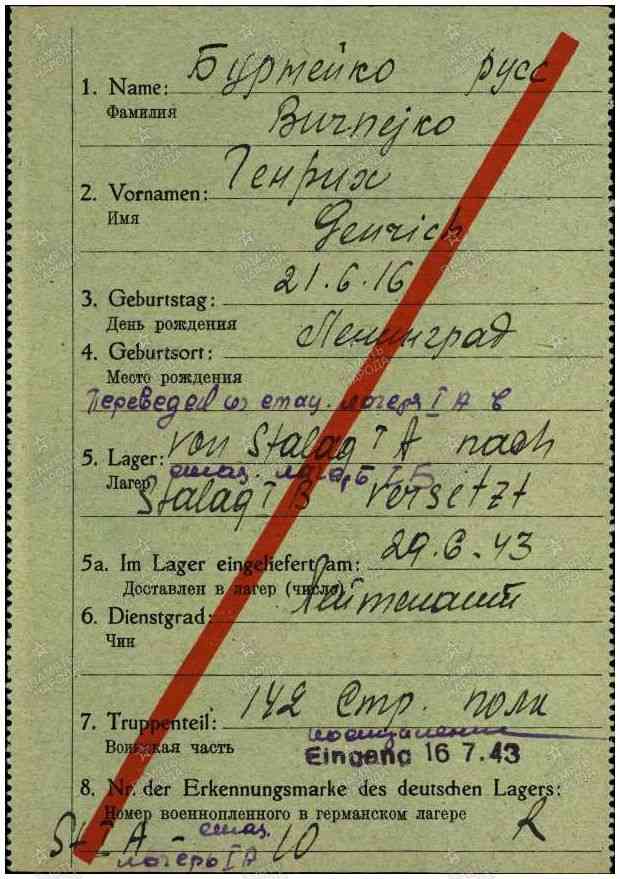 Буртейко русс
1. Name:
Фамилия
Burtejko
2. Vornamen: Генрих
Имя
Genrich
3. Geburtstag: 21.6.16
День рождения
4. Geburtsort: Ленинград
Место рождения
Переведен из стац. лагеря I A в
5. Lager: von Stalag I A nach
Лагерь стац. лагерь I Б
Stalag I B versetzt
5a. Im Lager eingeliefert am: 29.6.43
Доставлен в лагерь (число)
6. Dienstgrad: Лейтенант
Чин
7. Truppenteil: 142 Стр. полк
Воинская часть
поступление
Eingang 16 7.43
8. Nr. der Erkennungsmarke des deutschen Lagers:
Номер военнопленного в германском лагере
St I A – стац. 10 R
лагерь I A